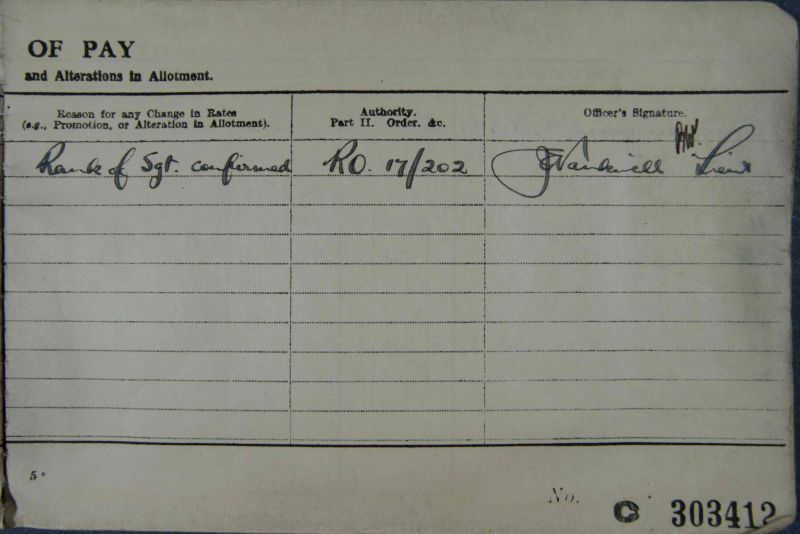 OF PAY
and Alterations in Allotment.
Reason for any Change in Rates
(e.g., Promotion, or Alteration in Allotment).
Authority.
Part II. Order. &c.
Officer's Signature.
Rank of Sgt. confirmed
RO. 17/202
Lieut
5*
No.
C 303412